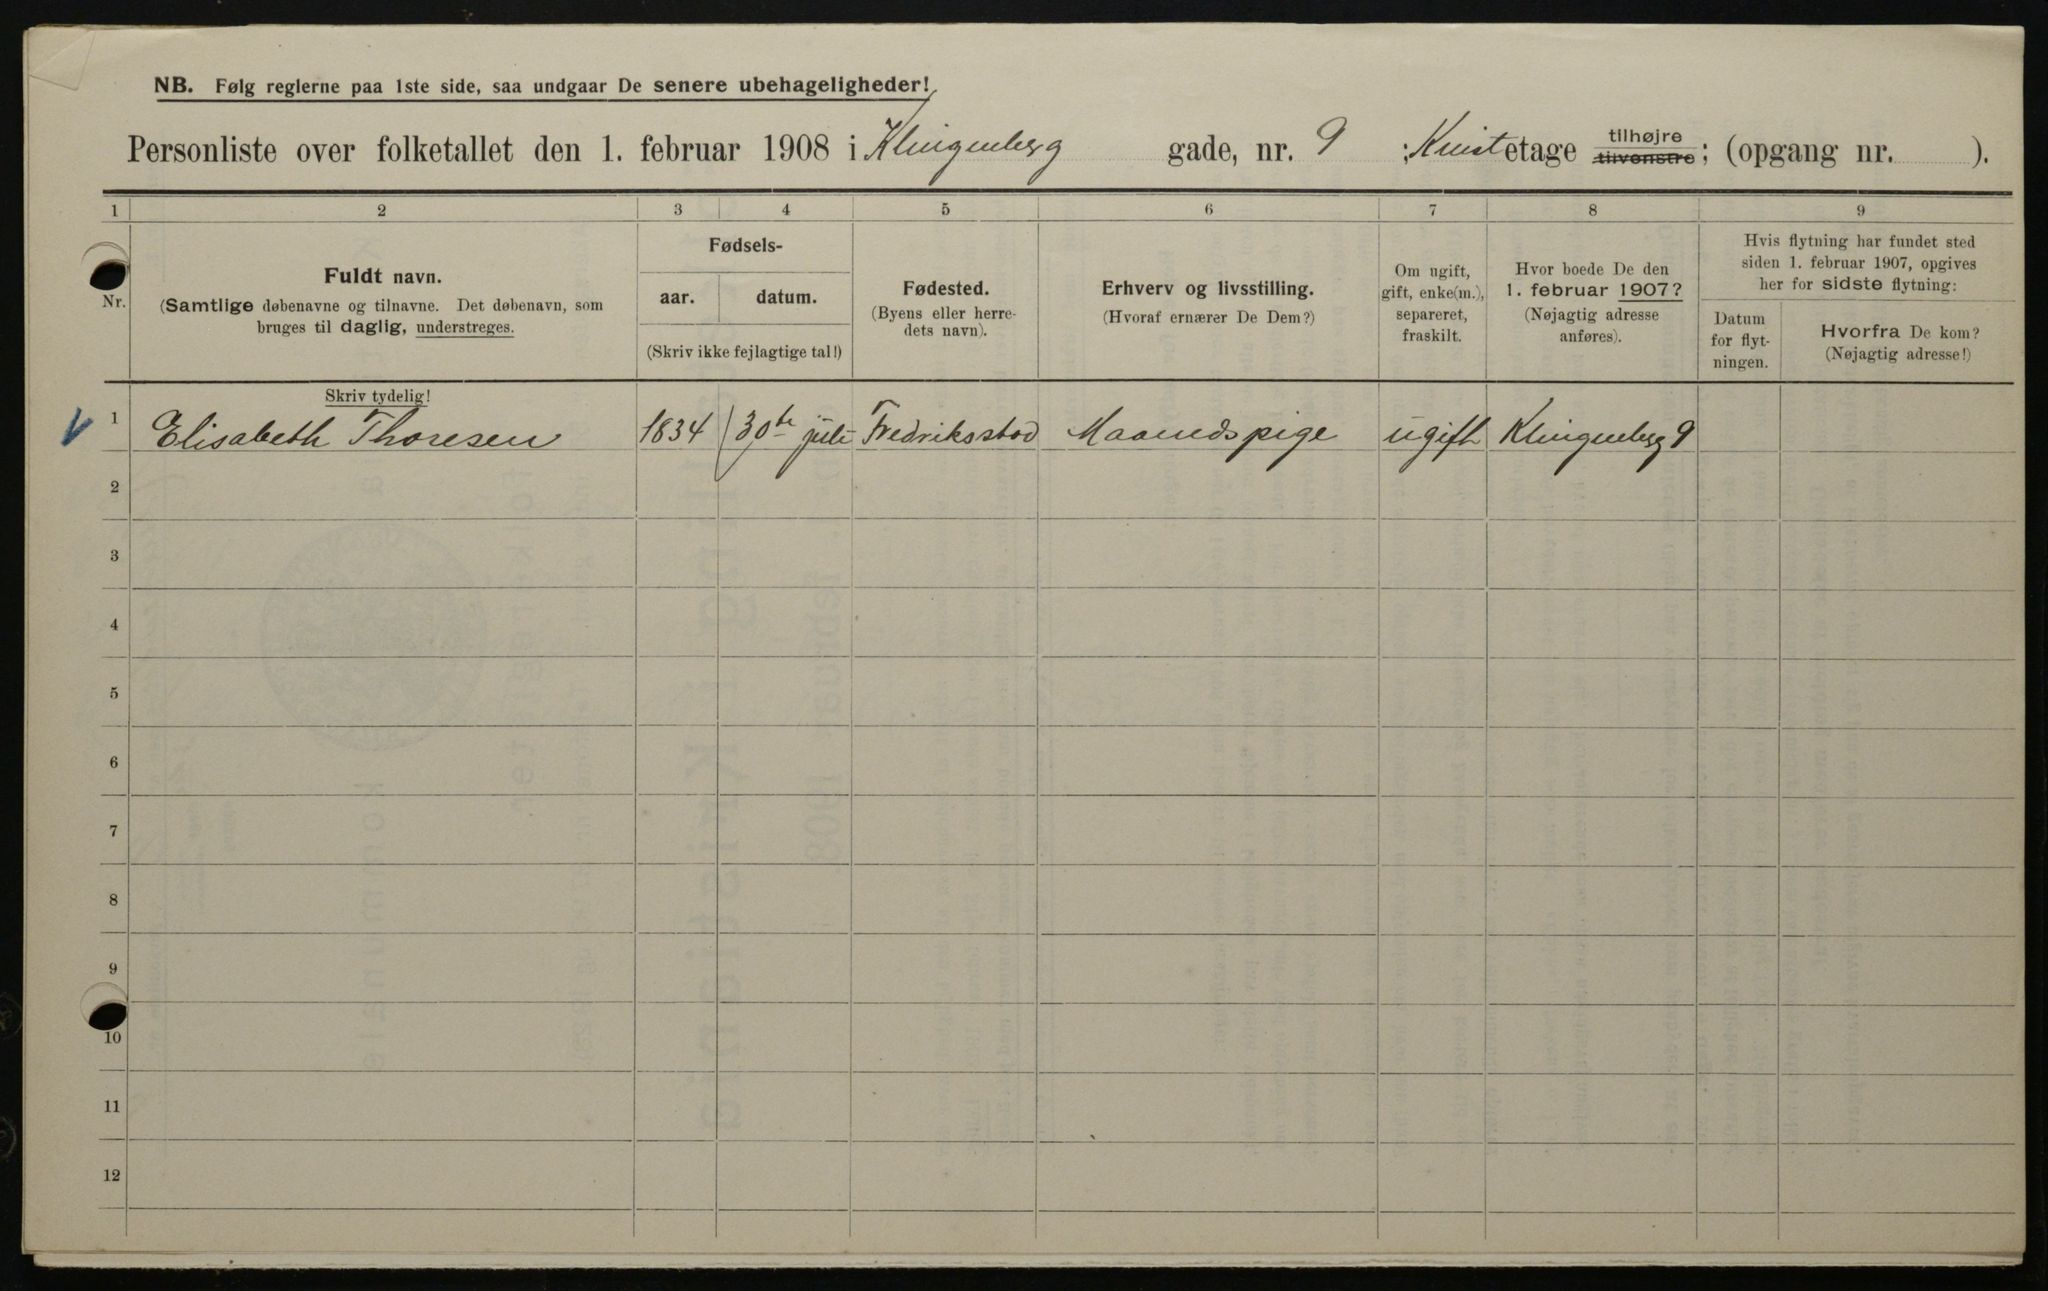 NB. Følg reglerne paa 1ste side, saa undgaar De senere ubehageligheder!
Personliste over folketallet den 1. februar 1908 i Klingenberg gade, nr. 9 ; Kvist etage tilhøjre tilvenstre ; (opgang nr. ).
1 2 3 4 5 6 7 8 9
Nr.
Fuldt navn.
(Samtlige døbenavne og tilnavne. Det døbenavn, som
bruges til daglig, understreges.
Fødsels-
aar. datum.
(Skriv ikke fejlagtige tal!)
Fødested.
(Byens eller herre-
dets navn).
Erhverv og livsstilling.
(Hvoraf ernærer De Dem?)
Om ugift,
gift, enke(m.),
separeret,
fraskilt.
Hvor boede De den
1. februar 1907?
(Nøjagtig adresse
anføres).
Hvis flytning har fundet sted
siden 1. februar 1907, opgives
her for sidste flytning:
Datum
for flyt-
ningen.
Hvorfra De kom?
(Nøjagtig adresse!)
Skriv tydelig!
1 Elisabeth Thoresen 1834 30te juli Fredriksstad Maanedspige ugift Klingenberg 9
2
3
4
5
6
7
8
9
10
11
12